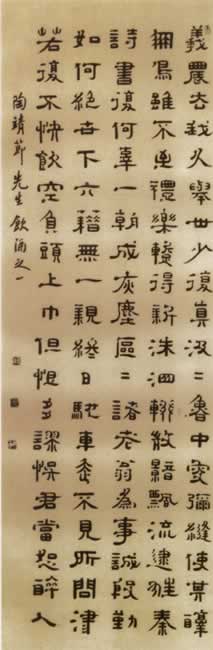 羲農去我久舉世少復真汲〻魯中叟彌縫使其淳
鳳鳥雖不至禮樂暫得新洙泗輟微響飄流逮狂秦
詩書復何辠一朝成灰塵區〻諸老翁為事誠殷勤
如何絕世下六籍無一親終日馳車走不見所問津
若復不快飲空負頭上巾但恨多謬誤君當恕醉人
陶靖節先生飲酒之一